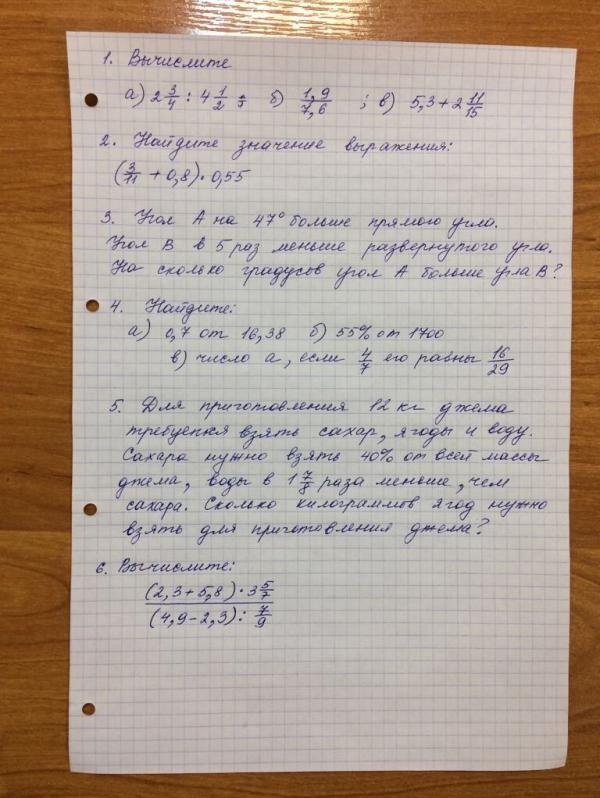 1. Вычислите
а) 2 3/4 : 4 1/2 ; б) 1,9/7,6 ; в) 5,3 + 2 11/15
2. Найдите значение выражения:
(3/11 + 0,8) · 0,55
3. Угол А на 47° больше прямого угла.
Угол В в 5 раз меньше развернутого угла.
На сколько градусов угол А больше угла В?
4. Найдите:
а) 0,7 от 16,38 б) 55% от 1700
в) число а, если 4/7 его равны 16/29
5. Для приготовления 12 кг джема
требуется взять сахар, ягоды и воду.
Сахара нужно взять 40% от всей массы
джема, воды в 1 7/8 раза меньше, чем
сахара. Сколько килограммов ягод нужно
взять для приготовления джема?
6. Вычислите:
(2,3 + 5,8) · 3 5/7
(4,9 - 2,3) : 7/9